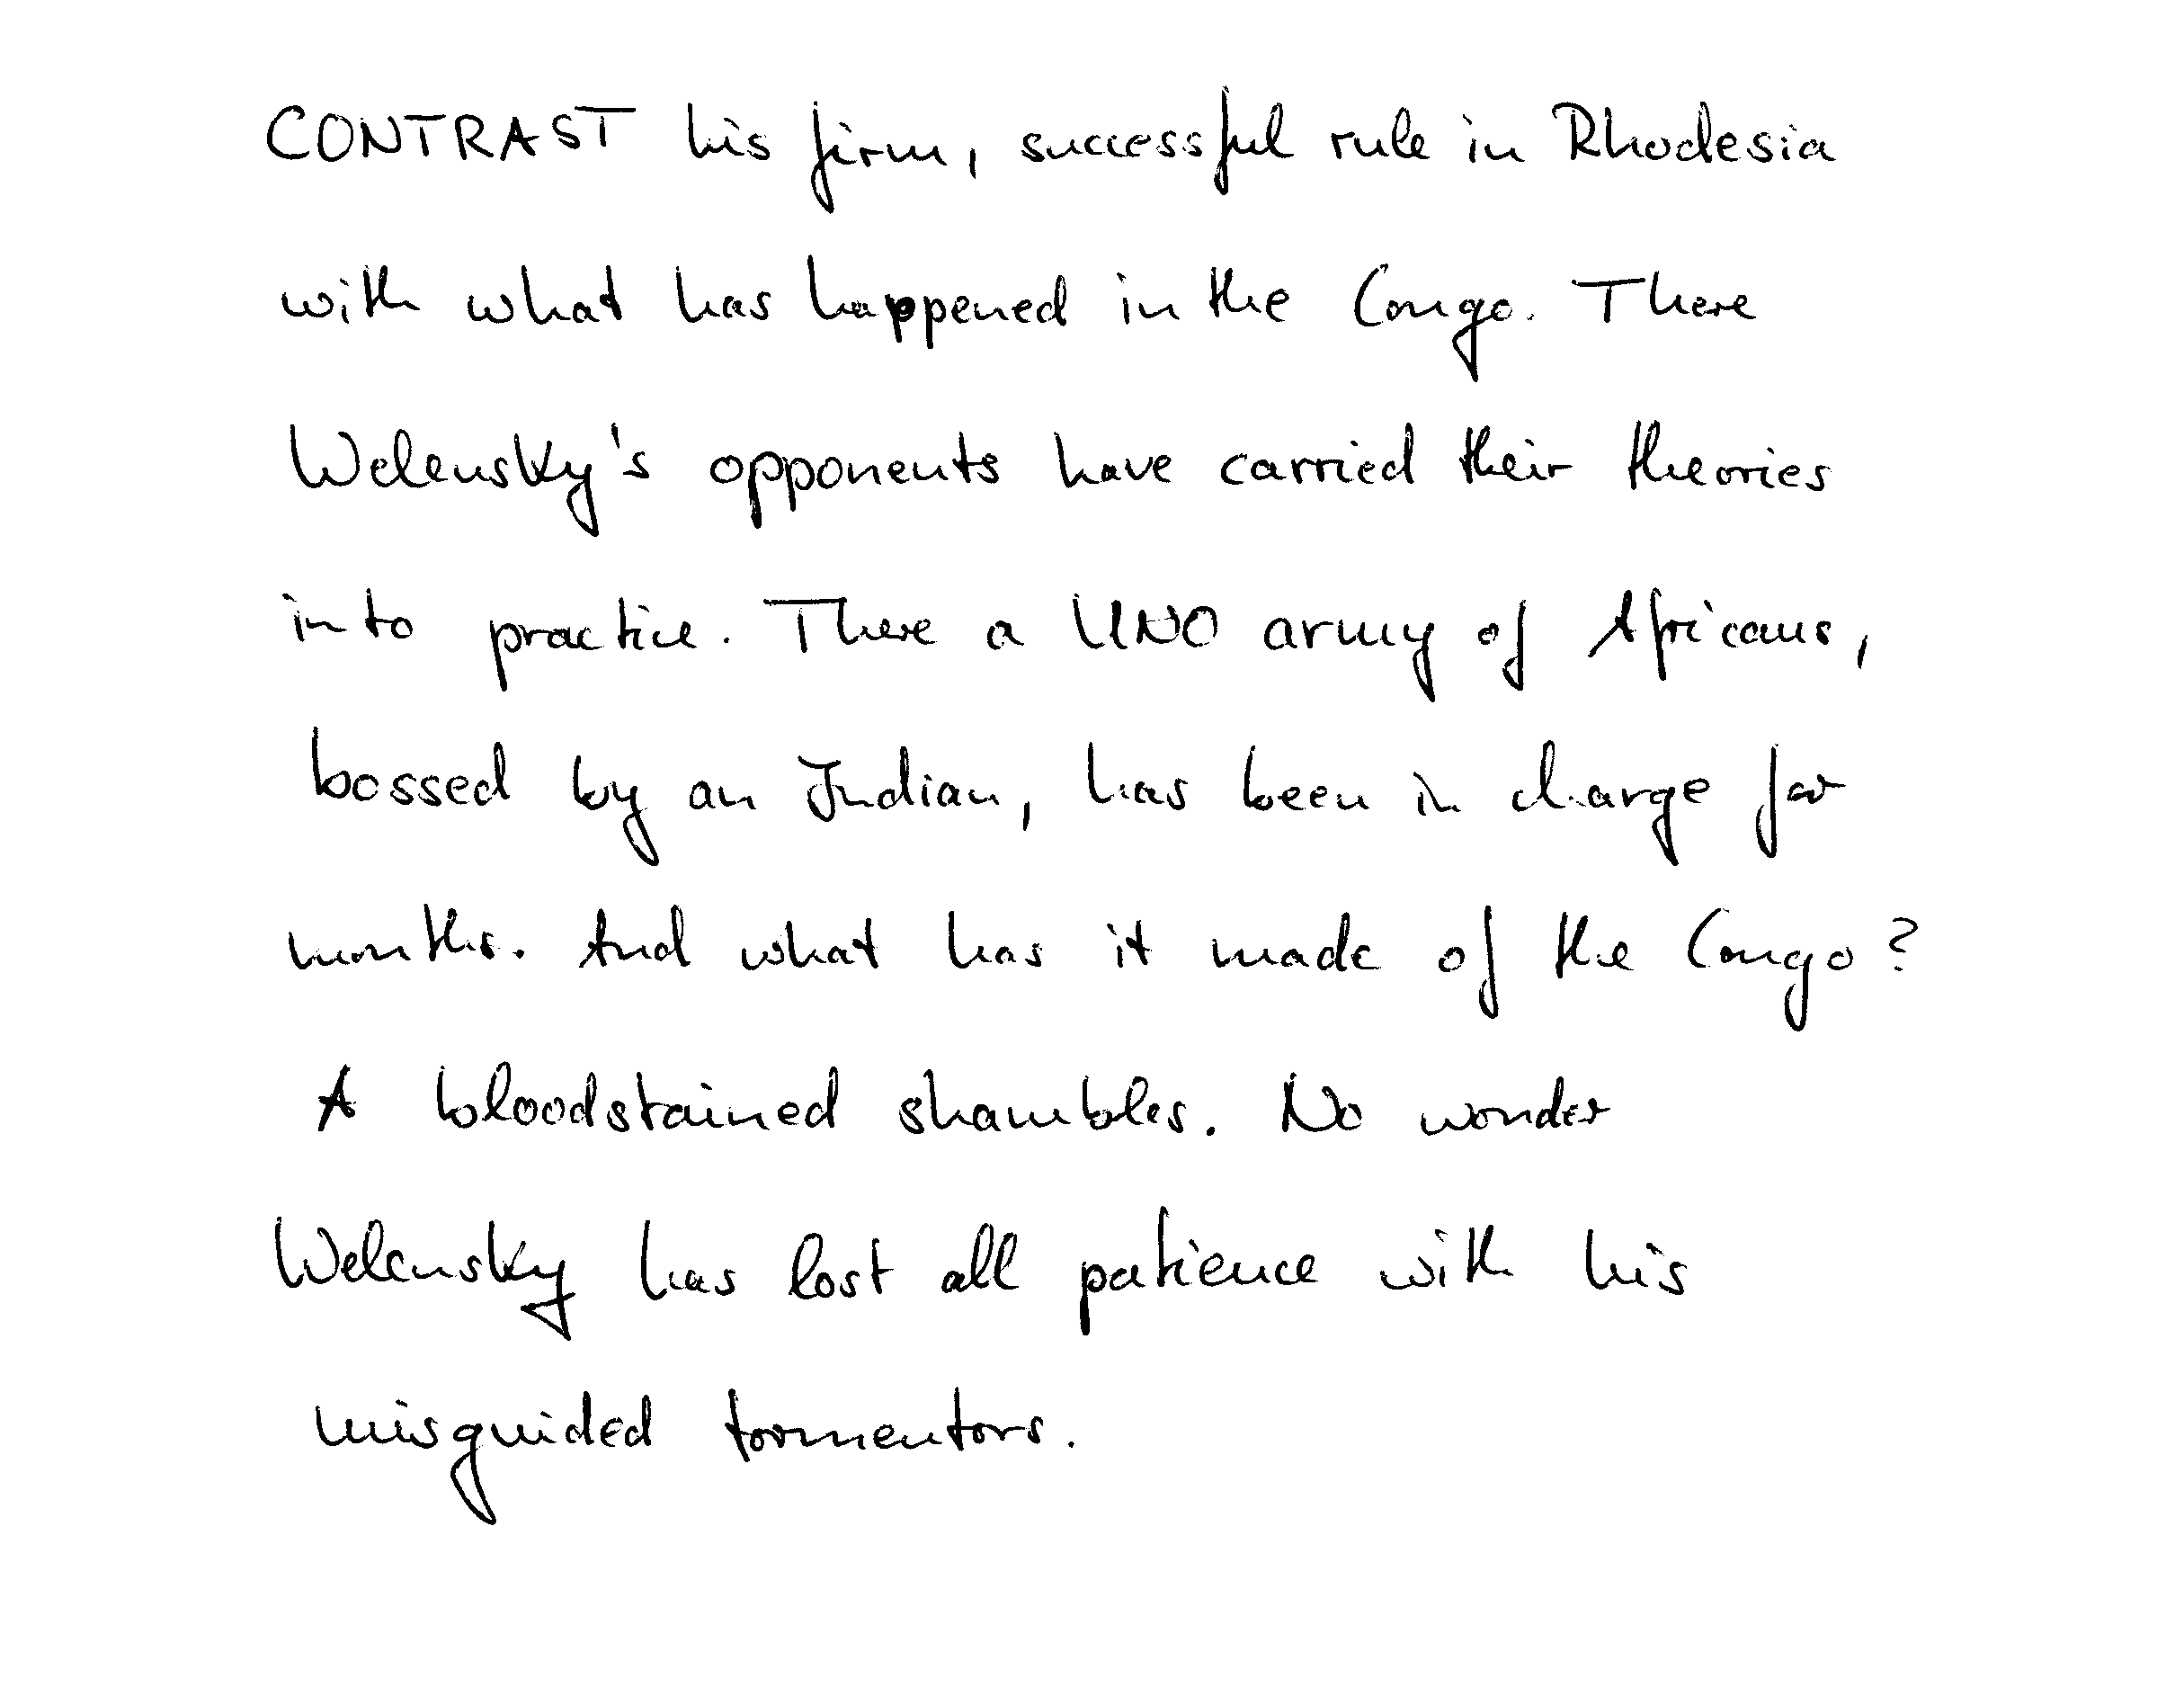 CONTRAST his firm, successful rule in Rhodesia
with what has happened in the Congo. There
Welensky's opponents have carried their theories
into practice. There a UNO army of Africans,
bossed by an Indian, has been in charge for
months. And what has it made of the Congo?
A bloodstained shambles. No wonder
Welensky has lost all patience with his
misguided tormentors.